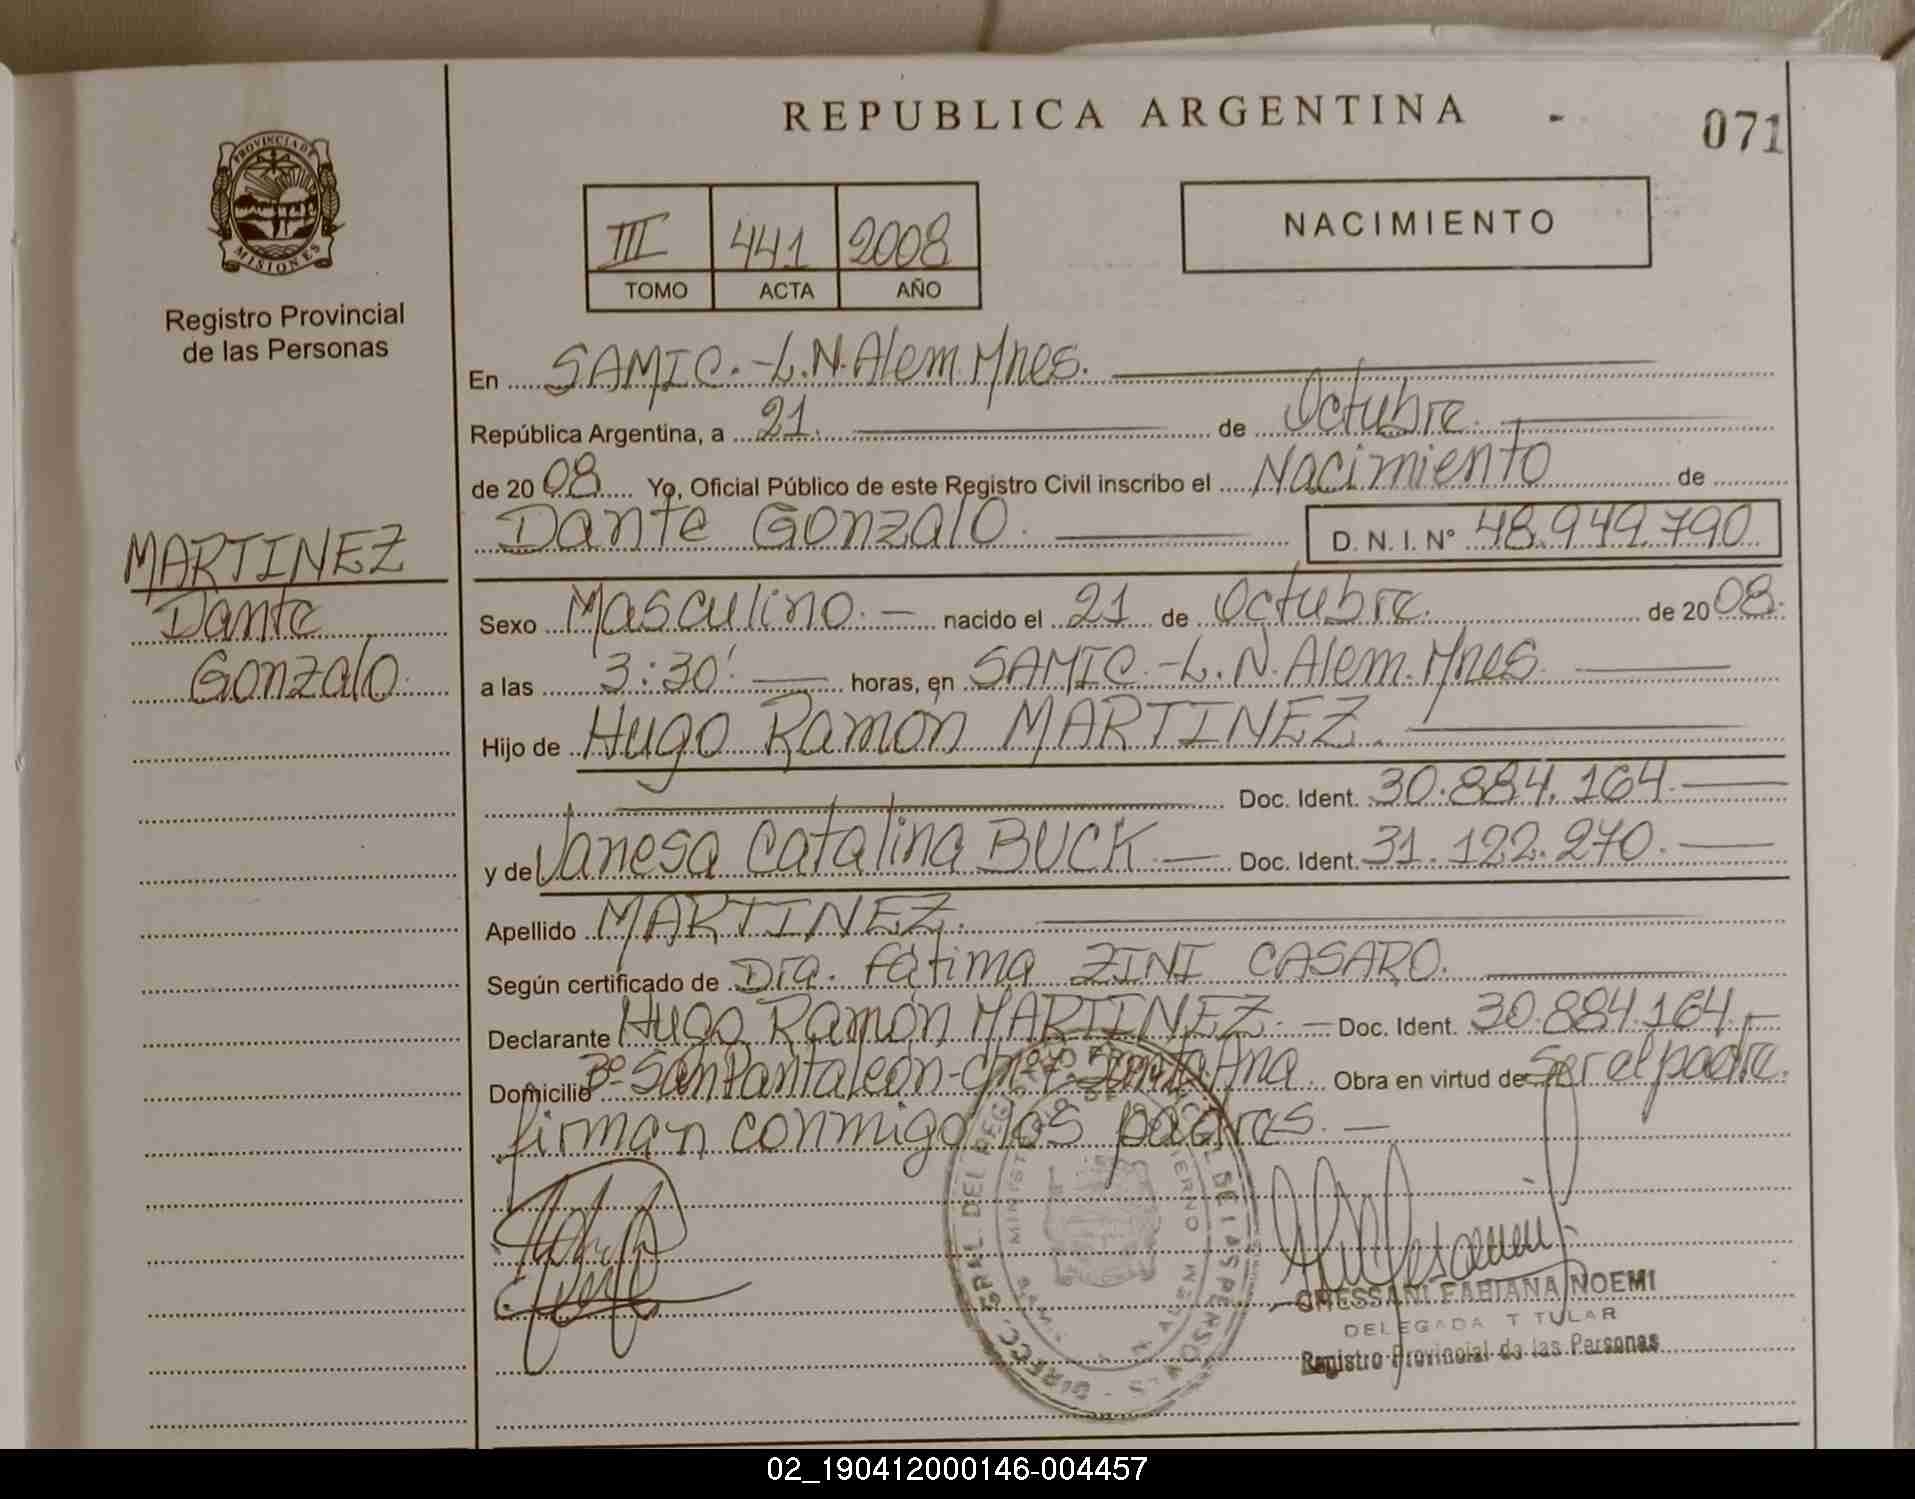 REPUBLICA ARGENTINA
071
PROVINCIA DE
MISIONES
Registro Provincial
de las Personas
III 441 2008
TOMO ACTA AÑO
NACIMIENTO
En SAMIC.-L.N.Alem.Mnes.
República Argentina, a 21. de Octubre.
de 2008 Yo, Oficial Público de este Registro Civil inscribo el Nacimiento de
Dante Gonzalo. D.N.I. Nº 48.949.790
MARTINEZ
Dante
Gonzalo.
Sexo Masculino.- nacido el 21 de Octubre. de 2008.
a las 3:30' horas, en SAMIC.-L.N.Alem.Mnes.
Hijo de Hugo Ramón MARTINEZ.
Doc. Ident. 30.884.164.
y de Vanesa Catalina BUCK.- Doc. Ident. 31.122.270.
Apellido MARTINEZ.
Según certificado de Dra. Fátima ZINI CASARO.
Declarante Hugo Ramón MARTINEZ.- Doc. Ident. 30.884.164.-
Domicilio Bº San Pantaleón- Santa Ana. Obra en virtud de Ser el padre.
firman conmigo los padres.-
FABIANA NOEMI
DELEGADA TITULAR
Registro Provincial de las Personas
02_190412000146-004457